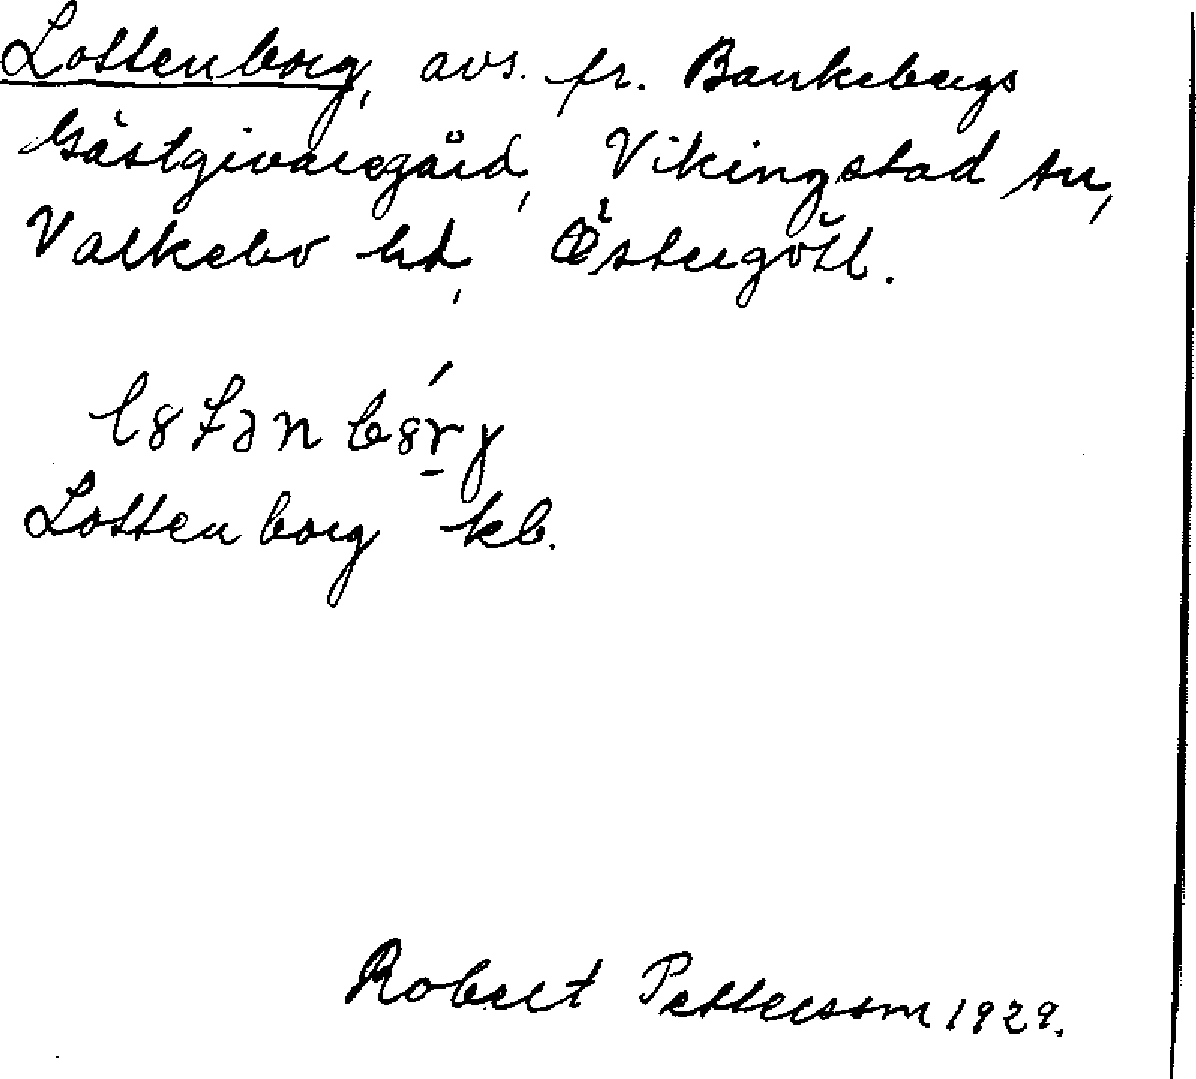 Lottenborg, avs. fr. Bankebergs
Gästgivaregård, Vikingstad sn,
Valkebo hd, Östergötl.
Lottenborg kb.
Robert Pettersson 1929.